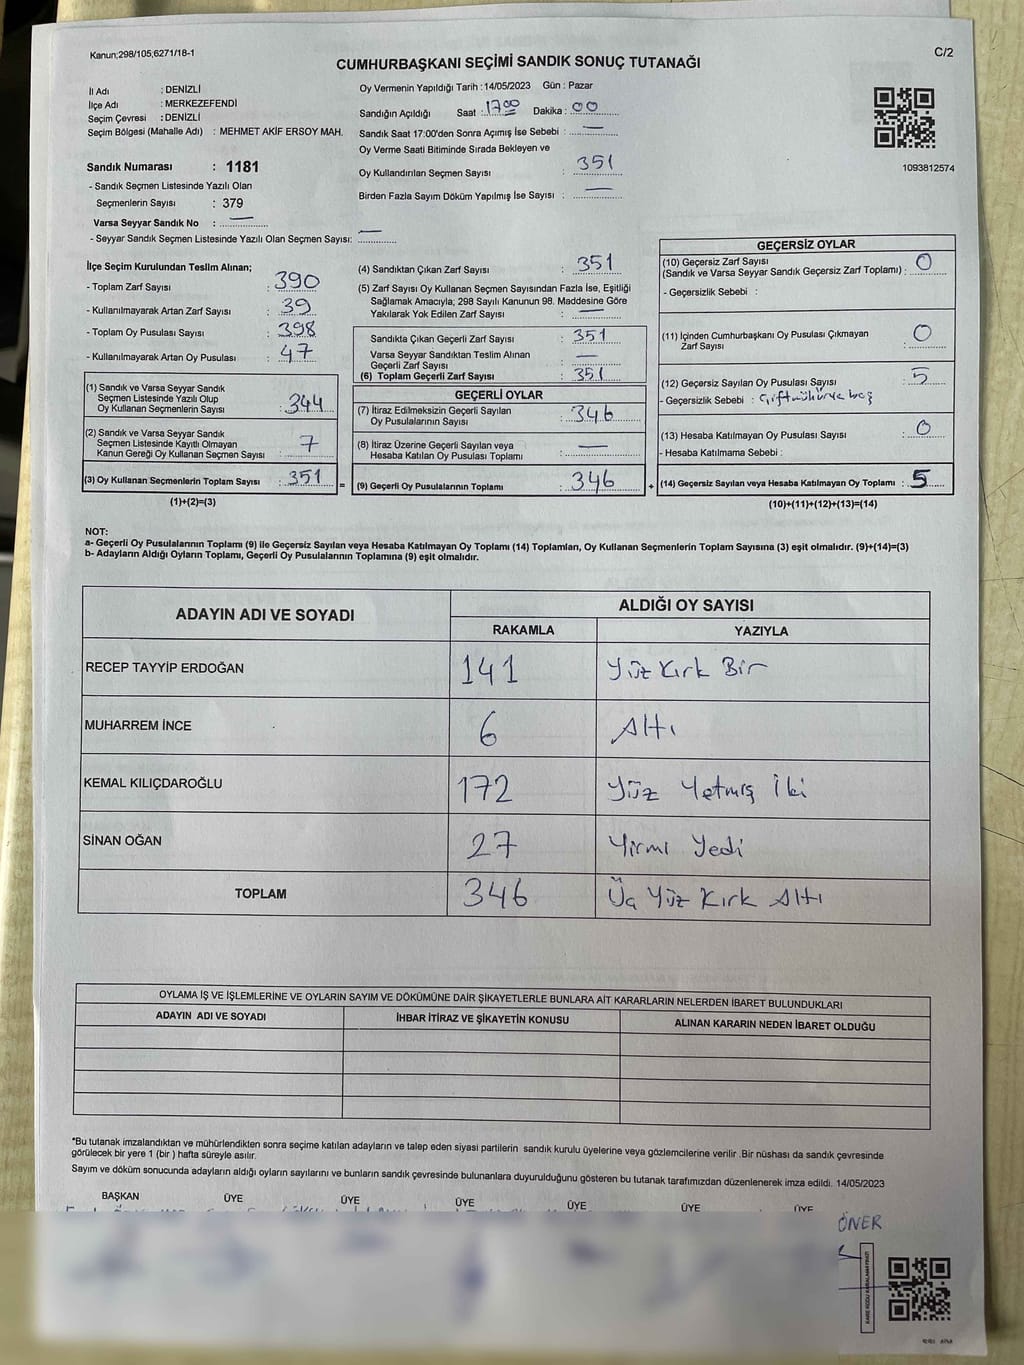 Kanun;298/105;6271/18-1
C/2
CUMHURBAŞKANI SEÇİMİ SANDIK SONUÇ TUTANAĞI
İl Adı : DENİZLİ
İlçe Adı : MERKEZEFENDİ
Seçim Çevresi : DENİZLİ
Seçim Bölgesi (Mahalle Adı) : MEHMET AKİF ERSOY MAH.
Sandık Numarası : 1181
- Sandık Seçmen Listesinde Yazılı Olan
Seçmenlerin Sayısı : 379
Varsa Seyyar Sandık No : —
- Seyyar Sandık Seçmen Listesinde Yazılı Olan Seçmen Sayısı: —
Oy Vermenin Yapıldığı Tarih : 14/05/2023 Gün : Pazar
Sandığın Açıldığı Saat : 17:00 Dakika : 00
Sandık Saat 17:00'den Sonra Açımış İse Sebebi : —
Oy Verme Saati Bitiminde Sırada Bekleyen ve
Oy Kullandırılan Seçmen Sayısı : 351
Birden Fazla Sayım Döküm Yapılmış İse Sayısı : —
1093812574
İlçe Seçim Kurulundan Teslim Alınan;
- Toplam Zarf Sayısı : 390
- Kullanılmayarak Artan Zarf Sayısı : 39
- Toplam Oy Pusulası Sayısı : 398
- Kullanılmayarak Artan Oy Pusulası : 47
(1) Sandık ve Varsa Seyyar Sandık
Seçmen Listesinde Yazılı Olup
Oy Kullanan Seçmenlerin Sayısı : 344
(2) Sandık ve Varsa Seyyar Sandık
Seçmen Listesinde Kayıtlı Olmayan
Kanun Gereği Oy Kullanan Seçmen Sayısı : 7
(3) Oy Kullanan Seçmenlerin Toplam Sayısı : 351
(1)+(2)=(3)
(4) Sandıktan Çıkan Zarf Sayısı : 351
(5) Zarf Sayısı Oy Kullanan Seçmen Sayısından Fazla İse, Eşitliği
Sağlamak Amacıyla; 298 Sayılı Kanunun 98. Maddesine Göre
Yakılarak Yok Edilen Zarf Sayısı : —
Sandıkta Çıkan Geçerli Zarf Sayısı : 351
Varsa Seyyar Sandıktan Teslim Alınan
Geçerli Zarf Sayısı : —
(6) Toplam Geçerli Zarf Sayısı : 351
GEÇERLİ OYLAR
(7) İtiraz Edilmeksizin Geçerli Sayılan
Oy Pusulalarının Sayısı : 346
(8) İtiraz Üzerine Geçerli Sayılan veya
Hesaba Katılan Oy Pusulası Toplamı : —
= (9) Geçerli Oy Pusulalarının Toplamı : 346
GEÇERSİZ OYLAR
(10) Geçersiz Zarf Sayısı
(Sandık ve Varsa Seyyar Sandık Geçersiz Zarf Toplamı) : 0
- Geçersizlik Sebebi :
(11) İçinden Cumhurbaşkanı Oy Pusulası Çıkmayan
Zarf Sayısı : 0
(12) Geçersiz Sayılan Oy Pusulası Sayısı : 5
- Geçersizlik Sebebi : Çift mühür ve boş
(13) Hesaba Katılmayan Oy Pusulası Sayısı : 0
- Hesaba Katılmama Sebebi :
+ (14) Geçersiz Sayılan veya Hesaba Katılmayan Oy Toplamı : 5
(10)+(11)+(12)+(13)=(14)
NOT:
a- Geçerli Oy Pusulalarının Toplamı (9) ile Geçersiz Sayılan veya Hesaba Katılmayan Oy Toplamı (14) Toplamları, Oy Kullanan Seçmenlerin Toplam Sayısına (3) eşit olmalıdır. (9)+(14)=(3)
b- Adayların Aldığı Oyların Toplamı, Geçerli Oy Pusulalarının Toplamına (9) eşit olmalıdır.
ADAYIN ADI VE SOYADI
ALDIĞI OY SAYISI
RAKAMLA YAZIYLA
RECEP TAYYİP ERDOĞAN 141 Yüz Kırk Bir
MUHARREM İNCE 6 Altı
KEMAL KILIÇDAROĞLU 172 Yüz Yetmiş İki
SİNAN OĞAN 27 Yirmi Yedi
TOPLAM 346 Üç Yüz Kırk Altı
OYLAMA İŞ VE İŞLEMLERİNE VE OYLARIN SAYIM VE DÖKÜMÜNE DAİR ŞİKAYETLERLE BUNLARA AİT KARARLARIN NELERDEN İBARET BULUNDUKLARI
ADAYIN ADI VE SOYADI İHBAR İTİRAZ VE ŞİKAYETİN KONUSU ALINAN KARARIN NEDEN İBARET OLDUĞU
*Bu tutanak imzalandıktan ve mühürlendikten sonra seçime katılan adayların ve talep eden siyasi partilerin sandık kurulu üyelerine veya gözlemcilerine verilir .Bir nüshası da sandık çevresinde
görülecek bir yere 1 (bir ) hafta süreyle asılır.
Sayım ve döküm sonucunda adayların aldığı oyların sayılarını ve bunların sandık çevresinde bulunanlara duyurulduğunu gösteren bu tutanak tarafımızdan düzenlenerek imza edildi. 14/05/2023
BAŞKAN ÜYE ÜYE ÜYE ÜYE ÜYE ÜYE
ÖNER